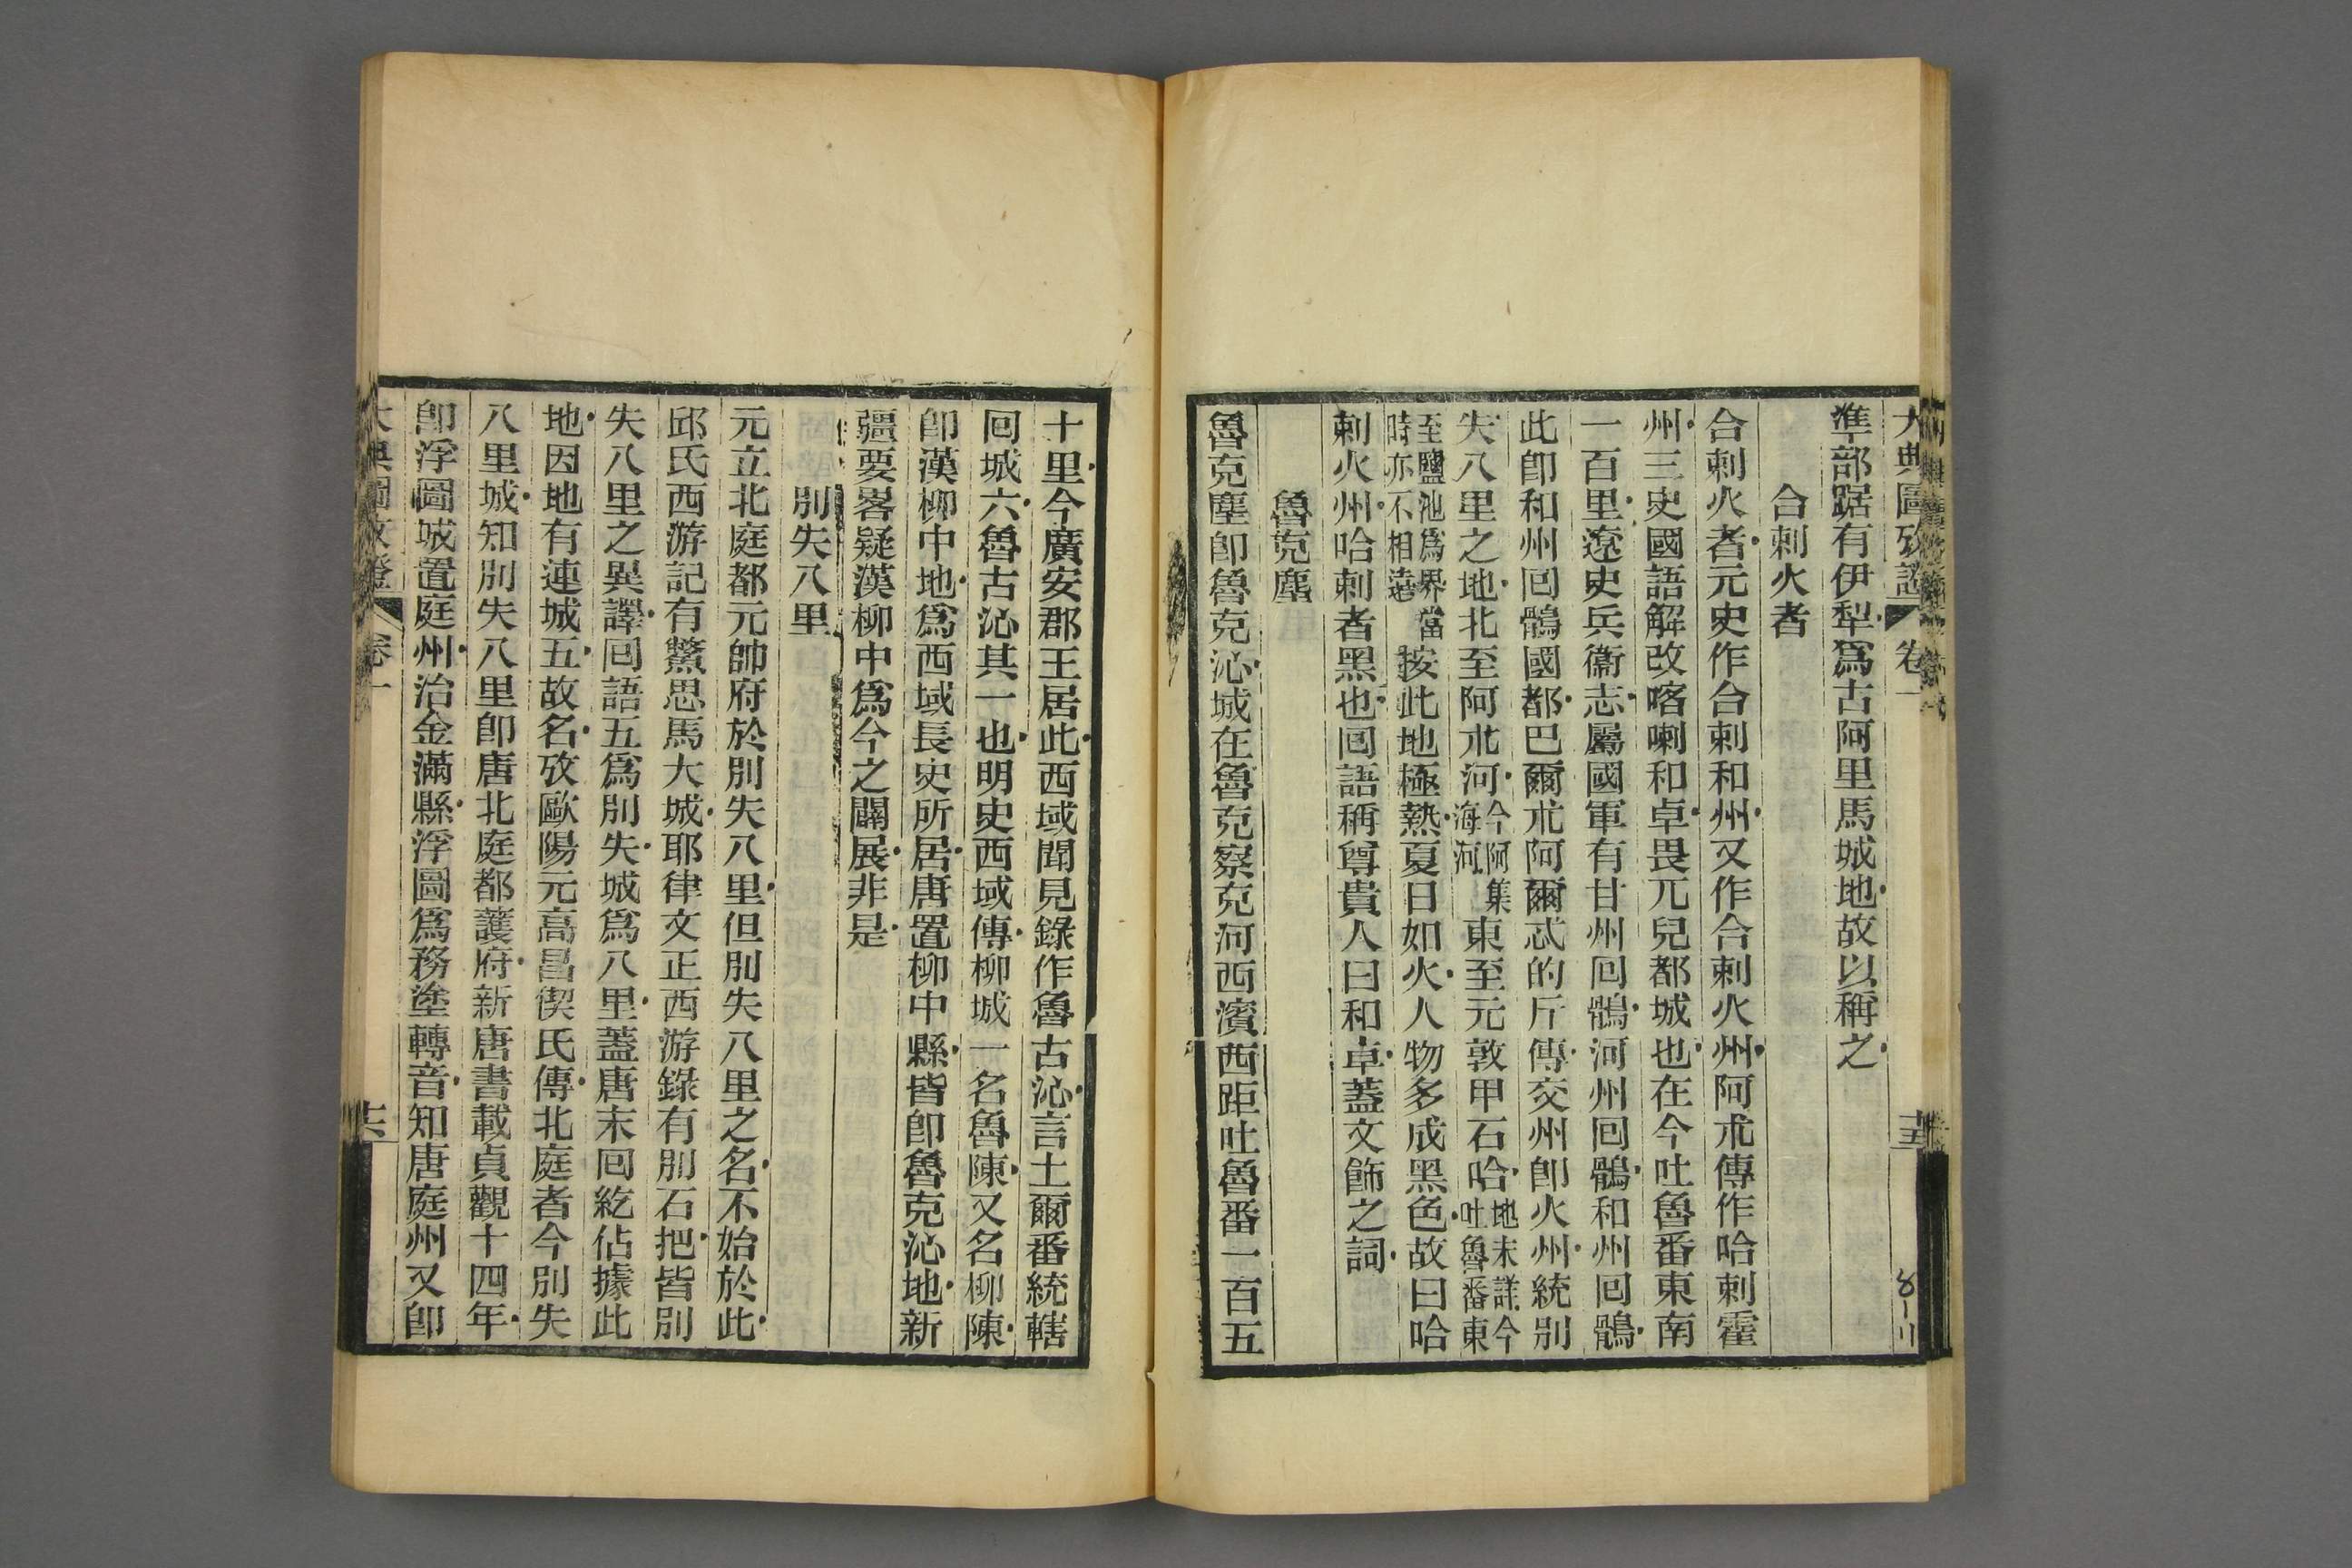 大典圖攷證 卷一
準部踞有伊犁爲古阿里馬城地故以稱之
合剌火者
合剌火者元史作合剌和州又作合剌火州阿朮傳作哈剌霍
州三史國語解改喀喇和卓畏兀兒都城也在今吐魯番東南
一百里遼史兵衞志屬國軍有甘州回鶻河州回鶻和州回鶻
此卽和州回鶻國都巴爾朮阿爾忒的斤傳交州卽火州統別
失八里之地北至阿朮河今阿集海河東至元敦甲石哈地未詳今吐魯番東
至鹽池爲界當時亦不相遠按此地極熱夏日如火人物多成黑色故曰哈
剌火州哈剌者黑也回語稱尊貴人曰和卓蓋文飾之詞
魯克塵
魯克塵卽魯克沁城在魯克察克河西濱西距吐魯番一百五
十里今廣安郡王居此西域聞見錄作魯古沁言土爾番統轄
回城六魯古沁其一也明史西域傳柳城一名魯陳又名柳陳
卽漢柳中地爲西域長史所居唐置柳中縣皆卽魯克沁地新
疆要畧疑漢柳中爲今之闢展非是
別失八里
元立北庭都元帥府於別失八里但別失八里之名不始於此
邱氏西游記有鱉思馬大城耶律文正西游錄有別石把皆別
失八里之異譯回語五爲別失城爲八里蓋唐末回紇佔據此
地因地有連城五故名攷歐陽元高昌偰氏傳北庭者今別失
八里城知別失八里卽唐北庭都護府新唐書載貞觀十四年
卽浮圖城置庭州治金滿縣浮圖爲務塗轉音知唐庭州又卽
大典圖攷證 卷一 十六